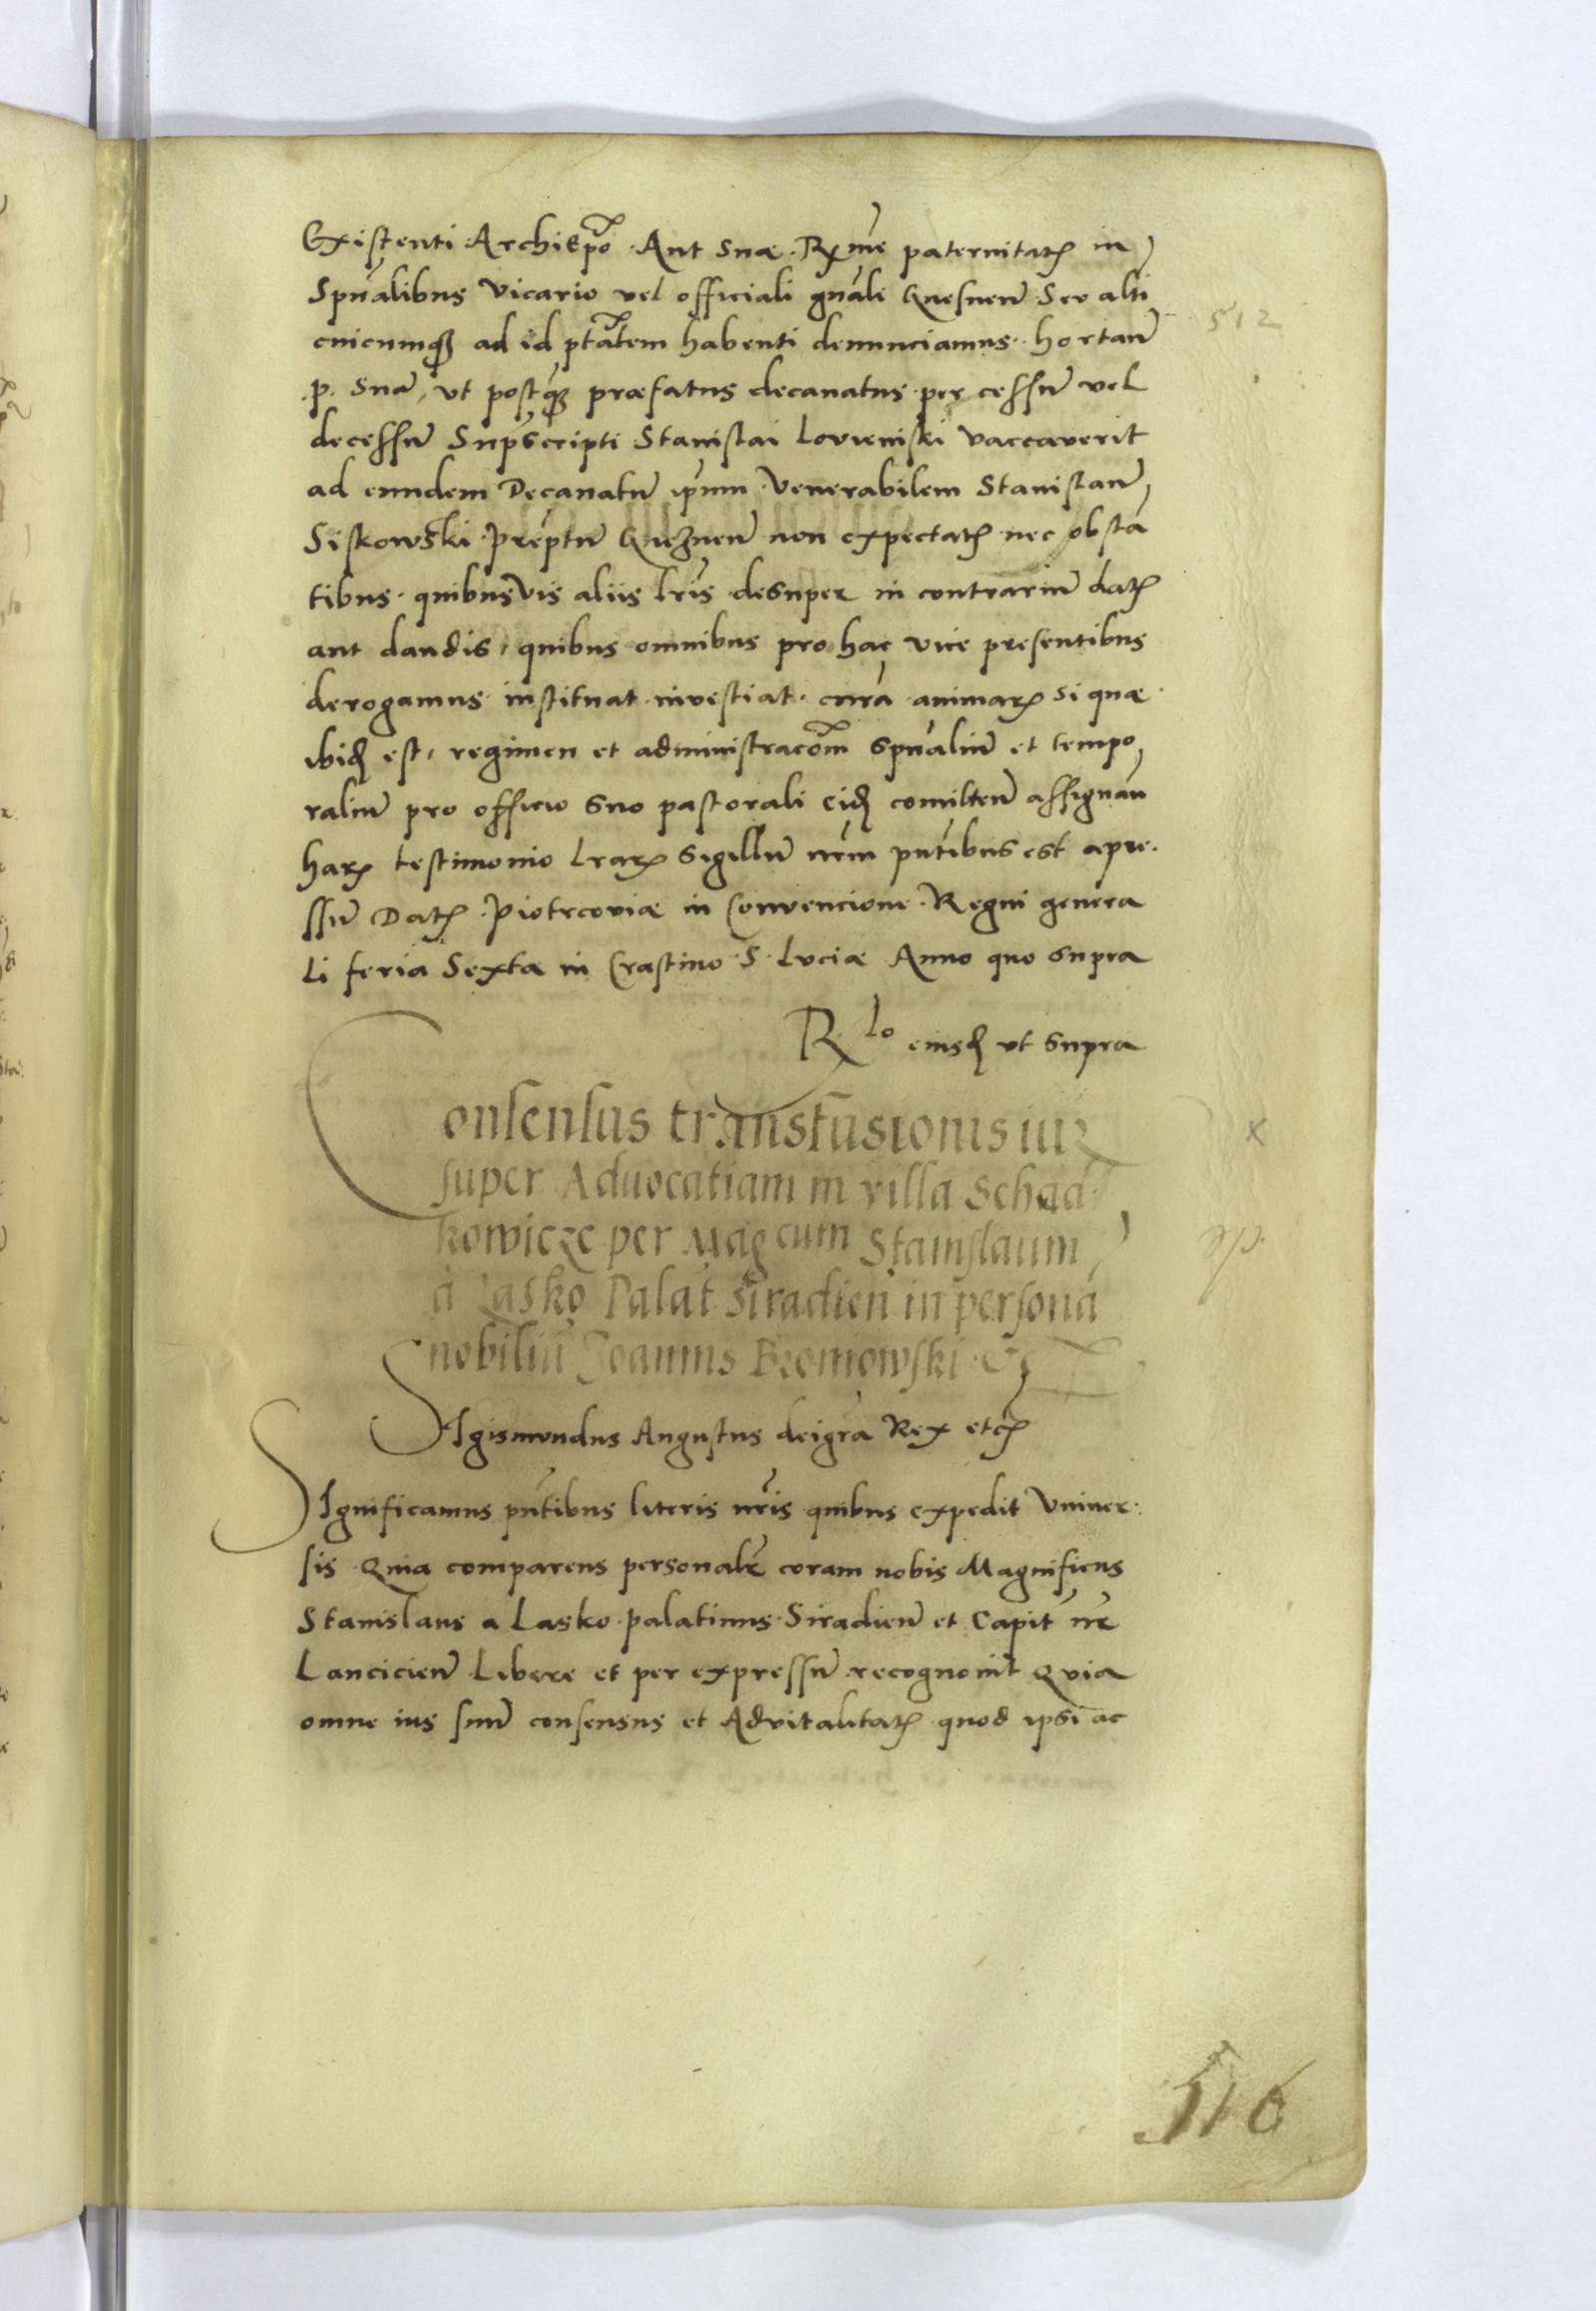 Existenti Archiepo Aut Suæ Rme paternitatis in
Spũalibus Vicario vel officiali gnali Gnesneñ Seu alti
cuicumqȝ ad id ptatem habenti denunciamus hortañ
p. Suã, ut postqȝ præfatus decanatus per cessũ vel
decessũ Supscripti Stanislai Lovieniski vaccaverit
ad eundem Decanatũ ipsum Venerabilem Stanislaũ
Siskowski Preptũ Gnezneñ non expectatis nec obstã
tibus quibusvis aliis lris desuper in contrariũ datis
aut dandis, quibus omnibus pro hac vice presentibus
derogamus instituat investiat curã animarum si quæ
ibid est, regimen et administracom spũaliũ et tempo
raliũ pro officio suo pastorali eid comitteñ assignañ
harum testimonio lrarum sigillũ nrm pntibus est apre
ssũ Datum Piotrcoviæ in Convencione Regni genera
li feria Sexta in Crastino S. Luciæ Anno quo supra
Rlo eiusd ut supra
512
Consensus transfusionis iuris
super Advocatiam in villa Schad
kowicze per Magcum Stanislaum
à Lasko Palat Siradieñ in personã
nobiliũ Joannis Bromowski Et
X
Sigismundus Augustus dei gra Rex etc
Significamus pntibus literis nris quibus expedit Univer
sis Quia comparens personalr coram nobis Magnificus
Stanislaus a Lasko palatinus Siradieñ et Capit nr
Lancicieñ Libere et per expressũ recognovit Quia
omne ius suũ consensus et Advitalitatis quod ipsi ac
516